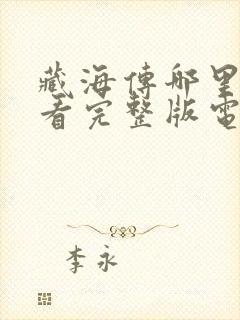 藏海傳哪里
看完整版電
李永